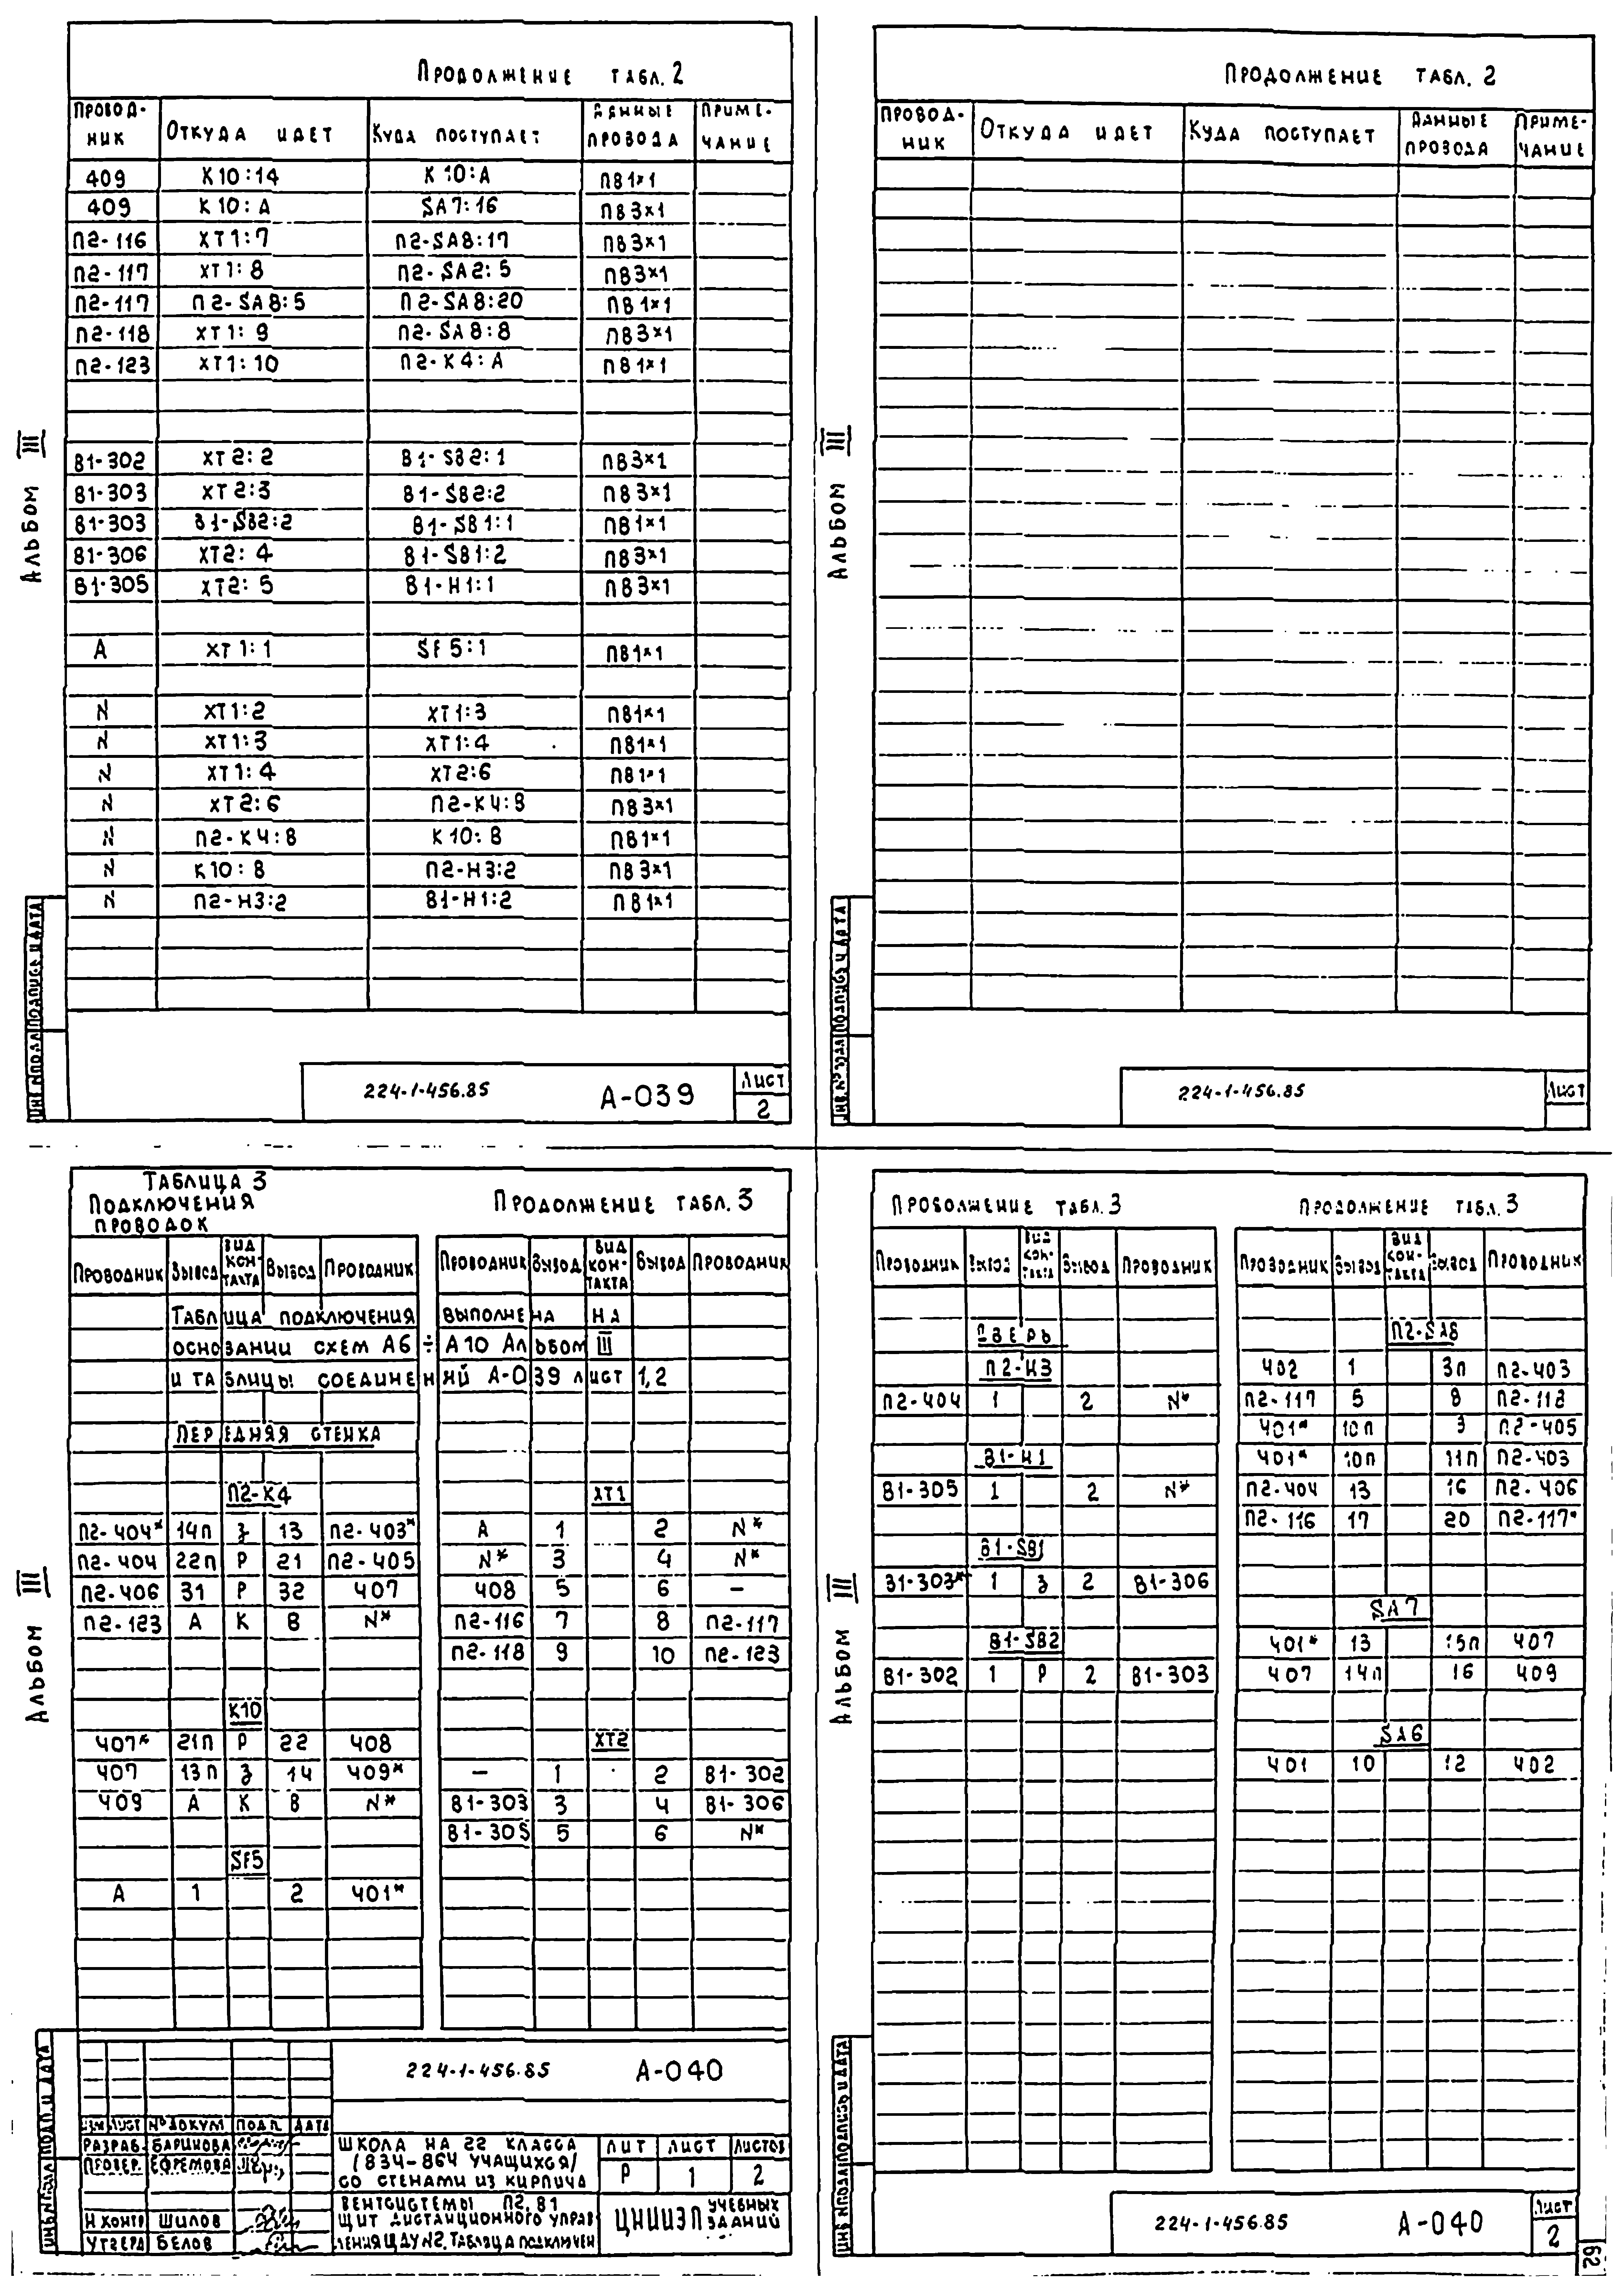 Продолжение табл. 2
Провод-ник Откуда идет Куда поступает Данные провода Приме-чание
409 К10:14 К10:А ПВ1×1
409 К10:А SA7:16 ПВ3×1
П2-116 ХТ1:7 П2-SA8:17 ПВ3×1
П2-117 ХТ1:8 П2-SA2:5 ПВ3×1
П2-117 П2-SA8:5 П2-SA8:20 ПВ1×1
П2-118 ХТ1:9 П2-SA8:8 ПВ3×1
П2-123 ХТ1:10 П2-К4:А ПВ1×1
В1-302 ХТ2:2 В1-SB2:1 ПВ3×1
В1-303 ХТ2:3 В1-SB2:2 ПВ3×1
В1-303 В1-SB2:2 В1-SB1:1 ПВ1×1
В1-306 ХТ2:4 В1-SB1:2 ПВ3×1
В1-305 ХТ2:5 В1-Н1:1 ПВ3×1
А ХТ1:1 SF5:1 ПВ1×1
N ХТ1:2 ХТ1:3 ПВ1×1
N ХТ1:3 ХТ1:4 ПВ1×1
N ХТ1:4 ХТ2:6 ПВ1×1
N ХТ2:6 П2-К4:В ПВ3×1
N П2-К4:В К10:В ПВ1×1
N К10:В П2-Н3:2 ПВ3×1
N П2-Н3:2 В1-Н1:2 ПВ1×1
Альбом III
Инв. № подл. Подпись и дата
224-1-456.85 А-039 Лист 2
Продолжение табл. 2
Провод-ник Откуда идет Куда поступает Данные провода Приме-чание
Альбом III
Инв. № подл. Подпись и дата
224-1-456.85 Лист
Таблица 3
Подключения
проводок
Продолжение табл. 3
Проводник Вывод Вид кон-такта Вывод Проводник
Проводник Вывод Вид кон-такта Вывод Проводник
Таблица подключения выполнена на
основании схем А6÷А10 Альбом III
и таблицы соединений А-039 лист 1,2
Передняя стенка
П2-К4
П2-404* 14п З 13 П2-403*
П2-404 22п Р 21 П2-405
П2-406 31 Р 32 407
П2-123 А К В N*
К10
407* 21п Р 22 408
407 13п З 14 409*
409 А К В N*
SF5
А 1 2 401*
ХТ1
А 1 2 N*
N* 3 4 N*
408 5 6 –
П2-116 7 8 П2-117
П2-118 9 10 П2-123
ХТ2
– 1 2 В1-302
В1-303 3 4 В1-306
В1-305 5 6 N*
Альбом III
Инв. № подл. Подп. и дата
224-1-456.85 А-040
Изм Лист № докум Подп. Дата
Разраб. Баринова
Провер. Ефремова
Н.контр Шилов
Утверд Белов
Школа на 22 класса
/834-864 учащихся/
со стенами из кирпича
Лит Лист Листов
Р 1 2
Вентсистемы П2, В1
Щит дистанционного управ-
ления ЩДУ №2. Таблица подключен
ЦНИИЭП учебных зданий
Продолжение табл. 3
Продолжение табл. 3
Проводник Вывод Вид кон-такта Вывод Проводник
Проводник Вывод Вид кон-такта Вывод Проводник
Дверь
П2-Н3
П2-404 1 2 N*
В1-Н1
В1-305 1 2 N*
В1-SB1
В1-303* 1 З 2 В1-306
В1-SB2
В1-302 1 Р 2 В1-303
П2-SA8
402 1 3п П2-403
П2-117 5 8 П2-118
401* 10п 3 П2-405
401* 10п 11п П2-403
П2-404 13 16 П2-406
П2-116 17 20 П2-117*
SA7
401* 13 15п 407
407 14п 16 409
SA6
401 10 12 402
Альбом III
Инв. № подл. Подпись и дата
224-1-456.85 А-040 Лист 2
62